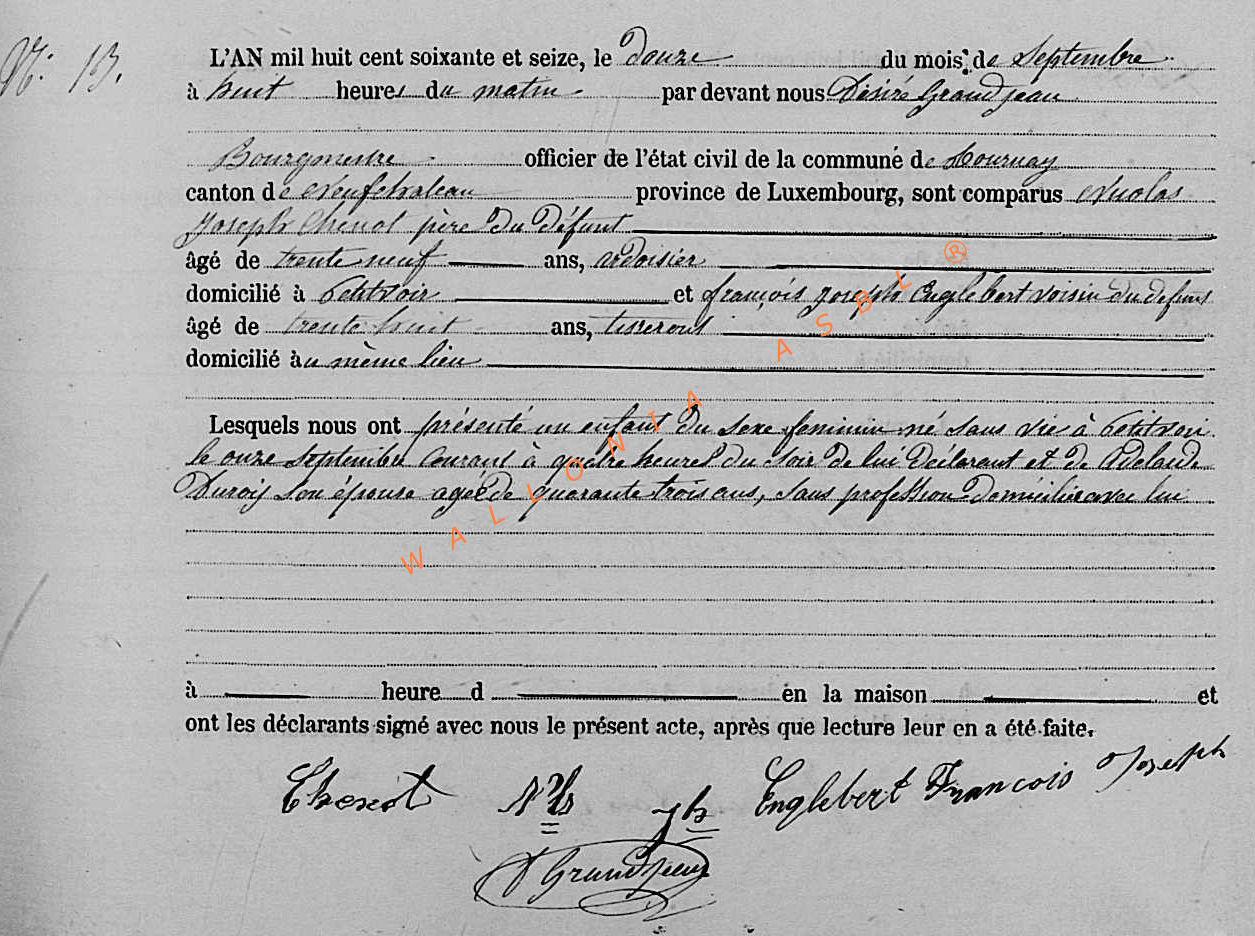 N: 13.
L'AN mil huit cent soixante et seize, le douze du mois de Septembre
à huit heures du matin par devant nous Désiré Grandjean
Bourgmestre officier de l'état civil de la commune de Tournay
canton de Neufchateau province de Luxembourg, sont comparus Nicolas
Joseph Thenot père du défunt
âgé de trente neuf ans, ardoisier
domicilié à Petitvoir et françois joseph Englebert voisin du defunt
âgé de trente huit ans, tisserand
domicilié au même lieu
Lesquels nous ont présenté un enfant du sexe feminin né sans vie à Petitvoir
le onze Septembre courant à quatre heures du soir de lui Déclarant et de Adelaide
son épouse agée de quarante trois ans, sans profession domiciliée avec lui
à heure d en la maison et
ont les déclarants signé avec nous le présent acte, après que lecture leur en a été faite.
Thenot Nls jh Englebert François Joseph
D Grandjean
WALLONIA ASBL ®